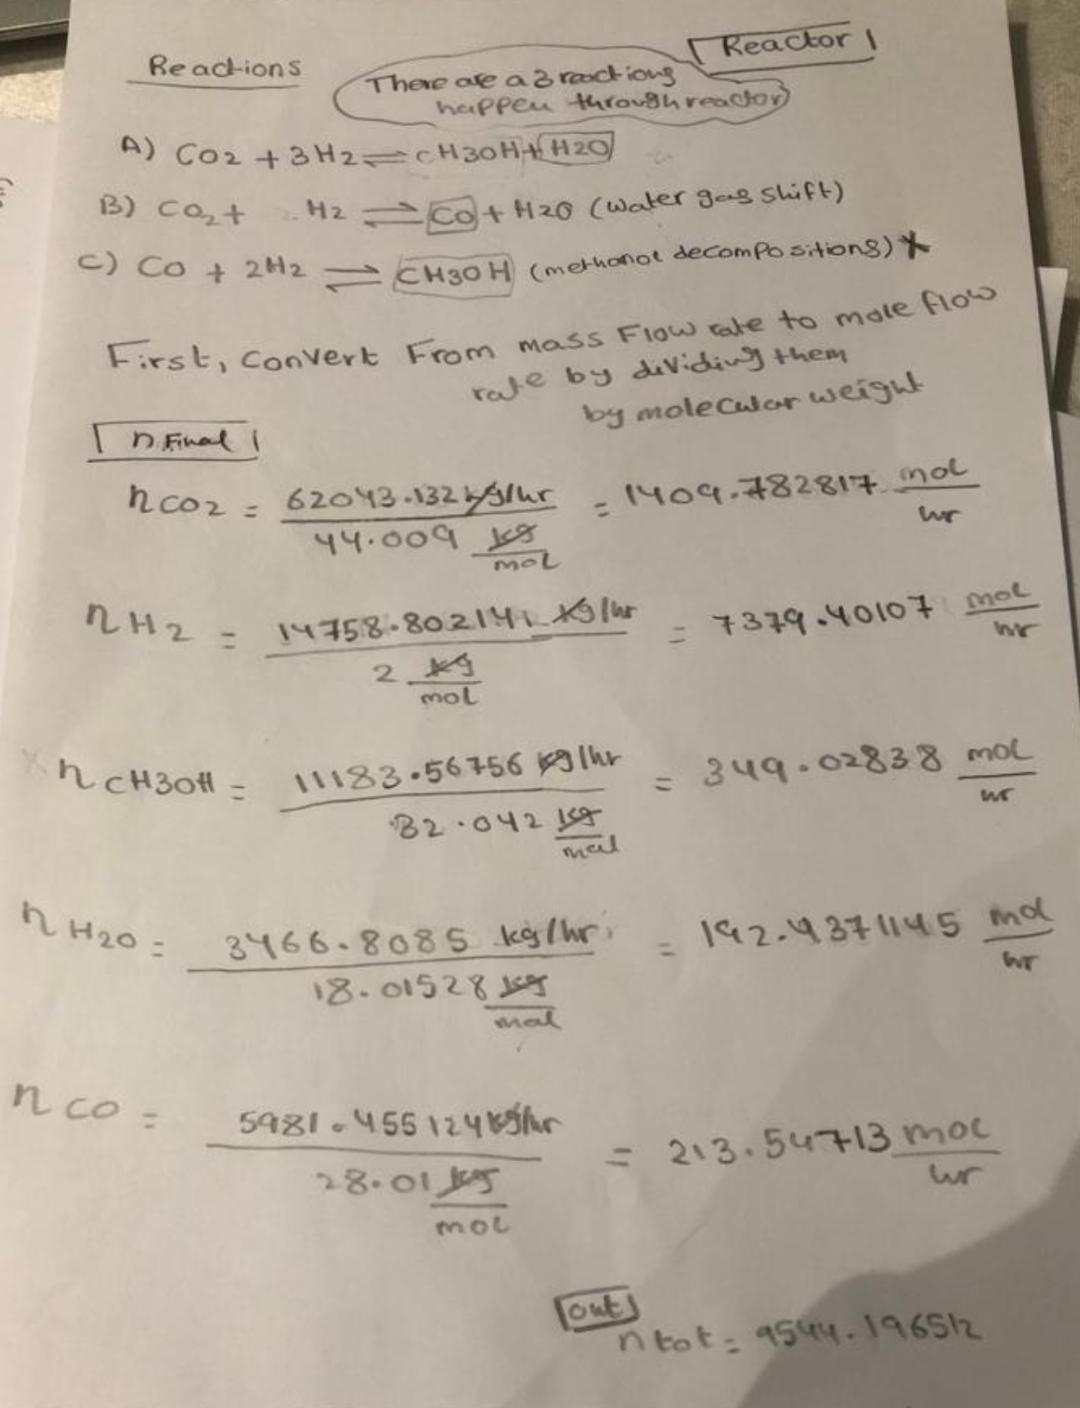 Reactions
Reactor 1
There are a 3 reactions
happen through reactor
A) CO2 + 3H2 ⇌ CH3OH + H2O
B) CO2 + H2 ⇌ CO + H2O (water gas shift)
C) CO + 2H2 ⇌ CH3OH (methanol decompositions) X
First, convert From mass Flow rate to mole flow
rate by dividing them
by molecular weight
n Final
nCO2 = 62043.132 kg/hr / 44.009 kg/mol = 1409.782817 mol/hr
nH2 = 14758.802141 kg/hr / 2 kg/mol = 7379.40107 mol/hr
nCH3OH = 11183.56756 kg/hr / 32.042 kg/mol = 349.02838 mol/hr
nH2O = 3466.8085 kg/hr / 18.01528 kg/mol = 192.4371145 mol/hr
nCO = 5981.455124 kg/hr / 28.01 kg/mol = 213.54713 mol/hr
out
ntot = 9544.196512